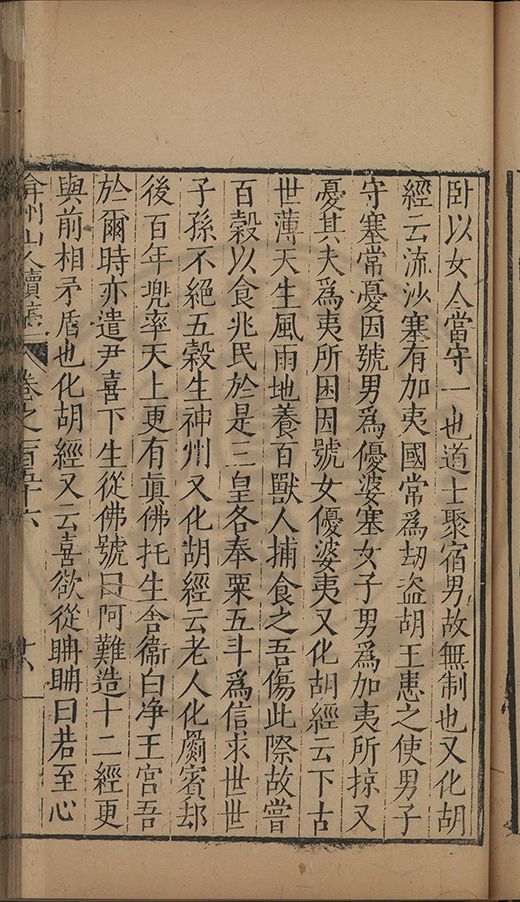 卧以女人當守一也道士聚宿男故無制也又化胡
經云流沙塞有加夷國常爲刼盗胡王患之使男子
守塞常憂因號男爲優婆塞女子男爲加夷所掠又
憂其夫爲夷所困因號女優婆夷又化胡經云下古
世薄天生風雨地養百獸人捕食之吾傷此際故嘗
百穀以食兆民於是三皇各奉粟五斗爲信求世世
子孫不絕五穀生神州又化胡經云老人化罽賓却
後百年兜率天上更有眞佛托生舎衞白净王宮吾
於爾時亦遣尹喜下生從佛號曰阿難造十二經更
與前相矛盾也化胡經又云喜欲從聃聃曰若至心
弇州山人續藁 卷之一百五十六 十八